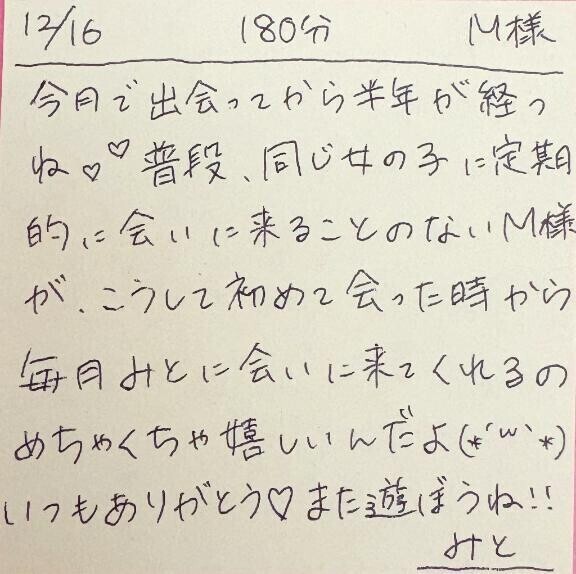 12/16 180分 M様
今月で出会ってから半年が経つ
ね♡♡普段、同じ女の子に定期
的に会いに来ることのないM様
が、こうして初めて会った時から
毎月みとに会いに来てくれるの
めちゃくちゃ嬉しいんだよ(*´ω`*)
いつもありがとう♡また遊ぼうね!!
みと